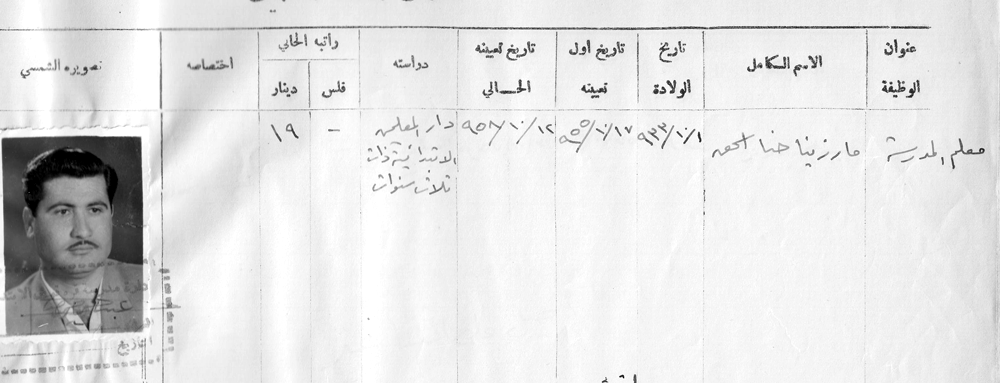 عنوان الوظيفة
الاسم الكامل
تاريخ الولادة
تاريخ اول تعيينه
تاريخ تعيينه الحالي
دراسته
راتبه الحالي
فلس
دينار
اختصاصه
تصويره الشمسي
معلم المدرسة
مارزينا حنا اسحق
٩٣٣/١٠/١
٩٥٥/١٠/١٧
٩٥٨/١٠/١٢
دار المعلمين
الابتدائية ذات
ثلاث سنوات
-
١٩
التاريخ